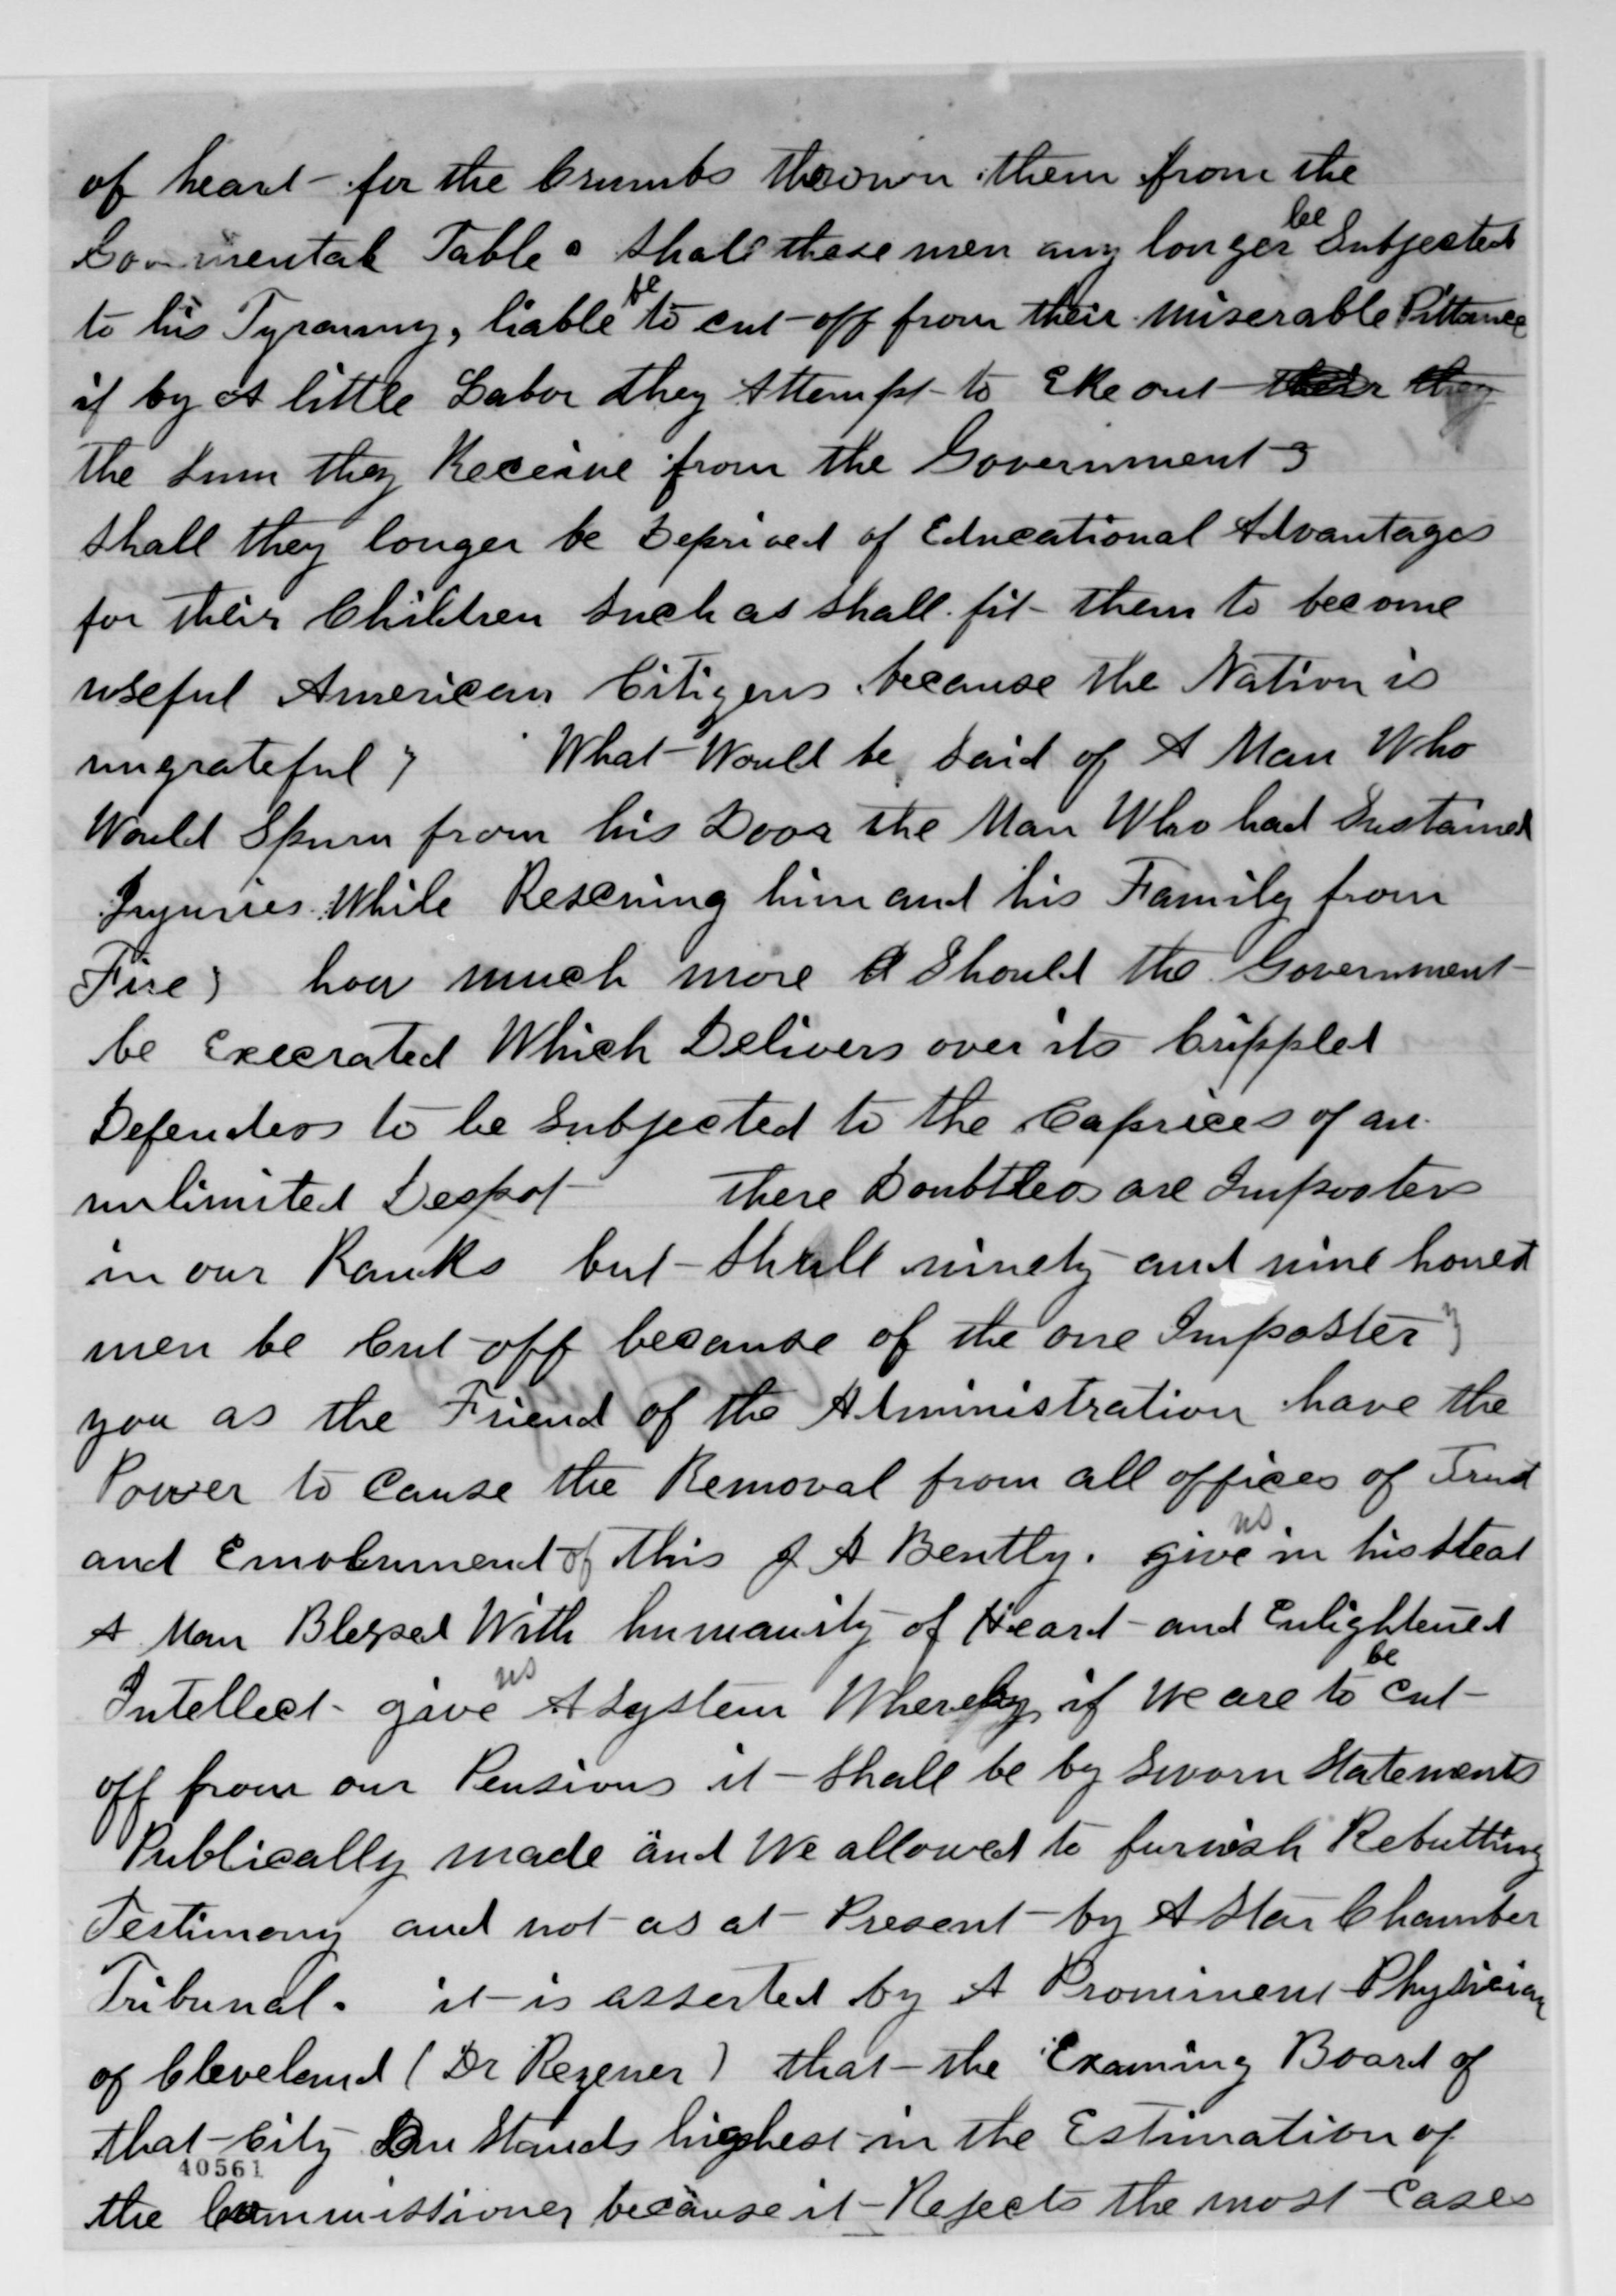 of heart - for the Crumbs thrown them from the
Govermental Table. Shall these men any longer be Subjected
to his Tyranny, liable be to cut off from their miserable Pittance
if by A little Labor they Attempt to Eke out their they
the Sum they Receive from the Government?
Shall they longer be Deprived of Educational Advantages
for their Children Such as shall fit them to become
useful American Citizens because the Nation is
ungrateful? What Would be Said of A Man Who
Would Spurn from his Door the Man Who had Sustained
Injuries While Rescuing him and his Family from
Fire? how much more Should the Government
be Execrated Which Delivers over its Crippled
Defenders to be Subjected to the Caprices of an
unlimited Despot There Doubtless are Imposters
in our Ranks but Shall ninety and nine honest
men be Cut off because of the one Imposter?
you as the Friend of the Administration have the
Power to Cause the Removal from all offices of Trust
and Emolument of this J A Bently. give us in his Stead
A Man Blessed With humanity of Heart and Enlightened
Intellect - give us A System Whereby if we are to be Cut
off from our Pensions it Shall be by Sworn Statements
Publically made and We allowed to furnish Rebutting
Testimony and not as at Present by A Star Chamber
Tribunal. it is asserted by A Prominent Physician
of Cleveland (Dr Rezener) that the Examing Board of
that City Stands highest in the Estimation of
40561
the Commissioner because it Rejects the most Cases